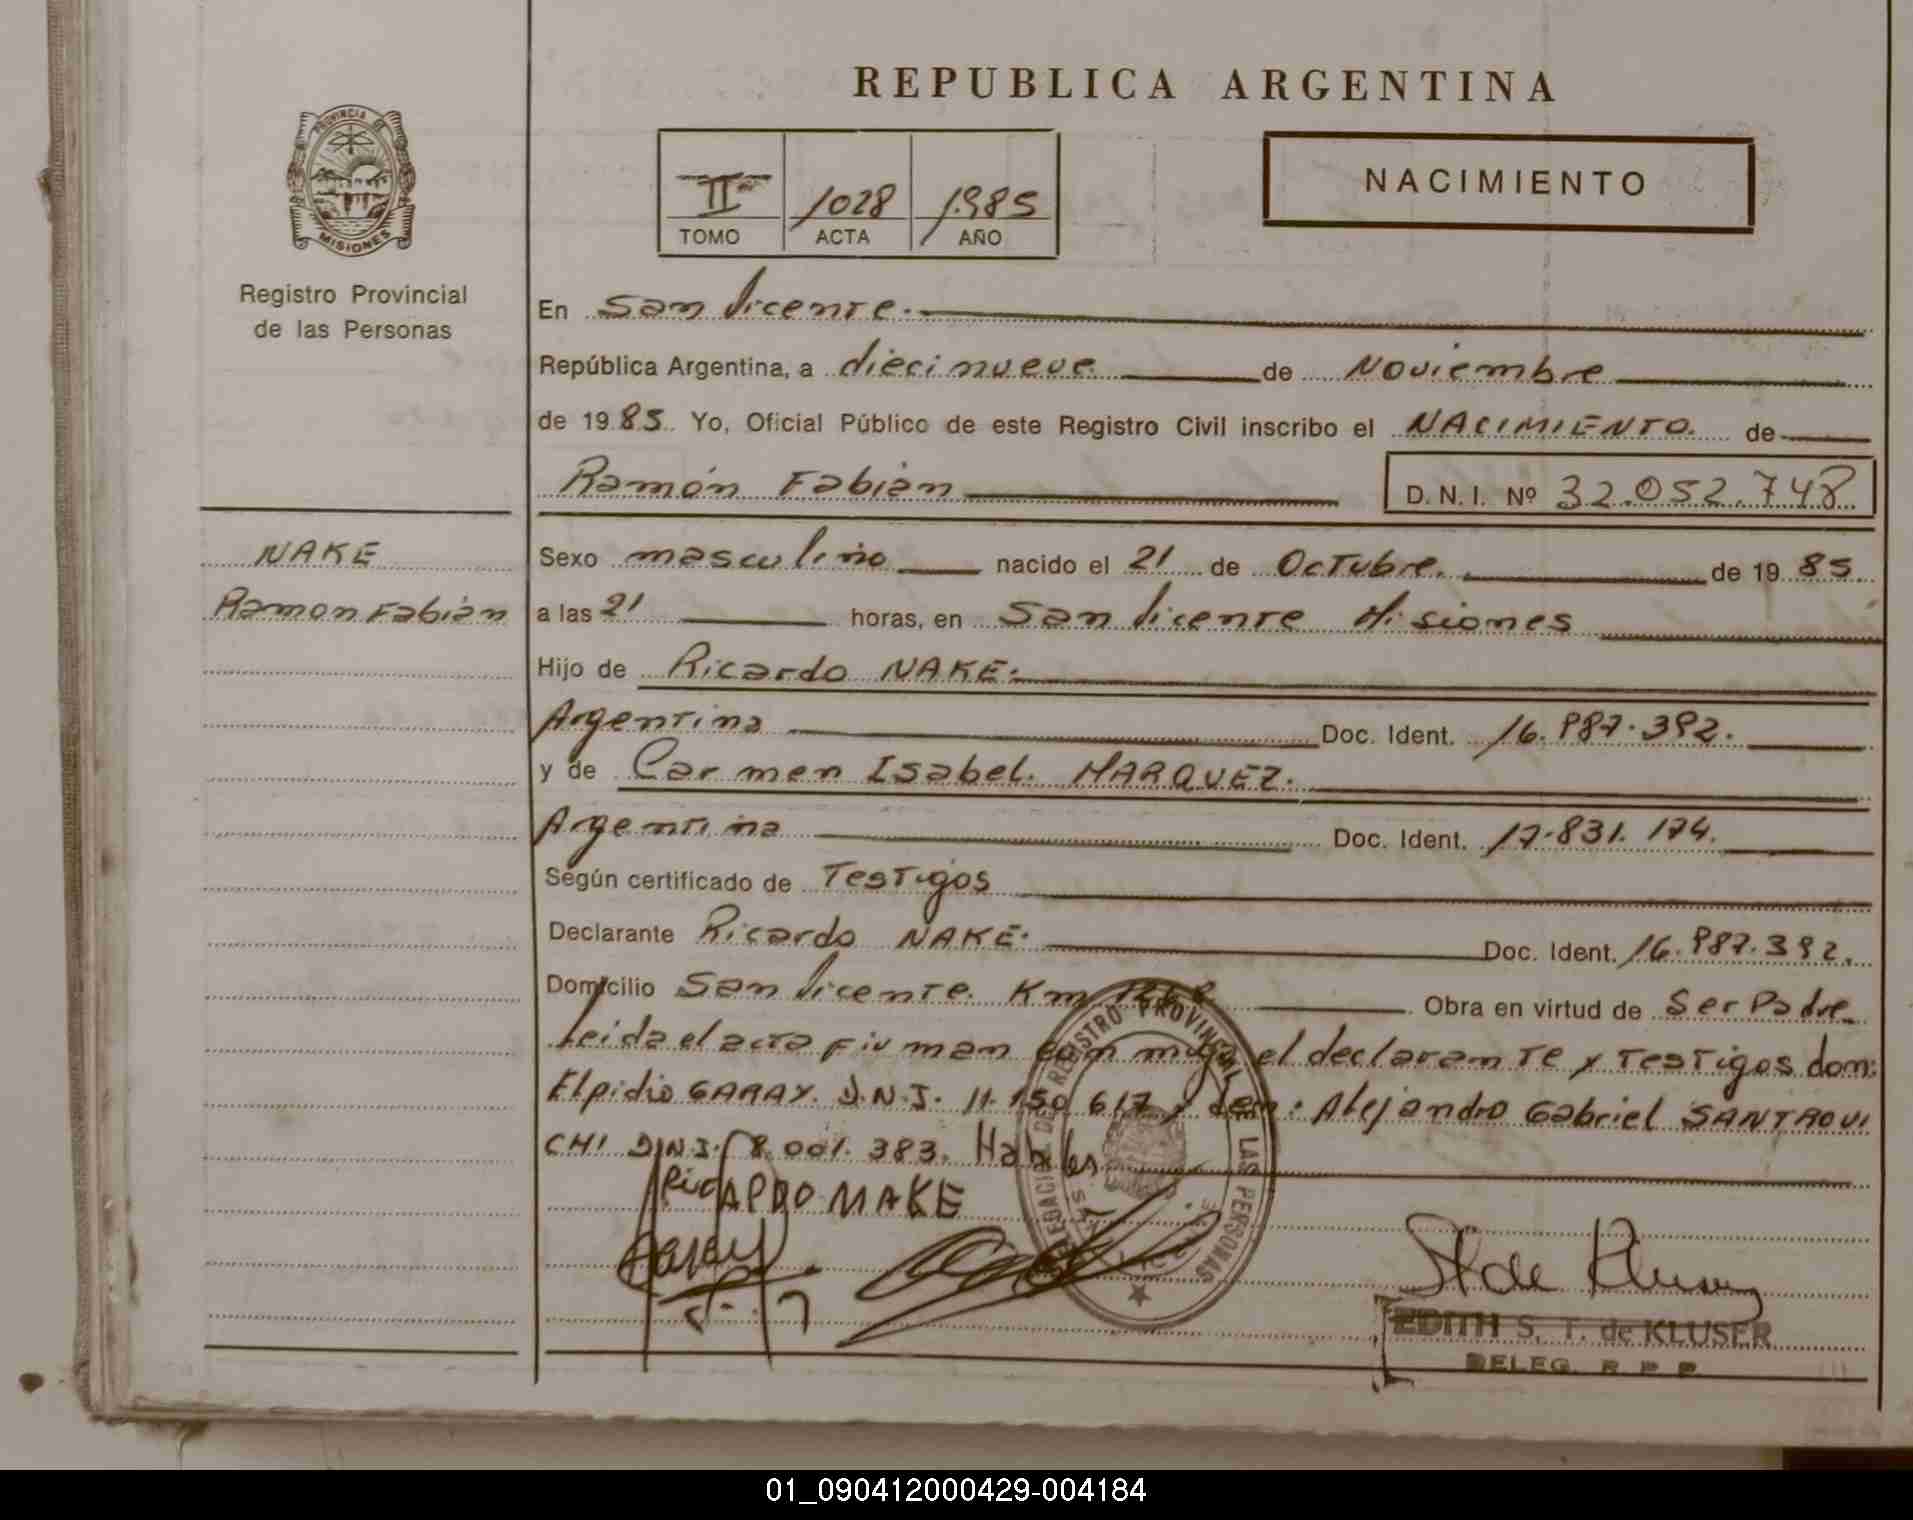 REPUBLICA ARGENTINA
PROVINCIA DE
MISIONES
Registro Provincial
de las Personas
II 1028 1985
TOMO ACTA AÑO
NACIMIENTO
En San Vicente.
República Argentina, a diecinueve de Noviembre
de 1985. Yo, Oficial Público de este Registro Civil inscribo el NACIMIENTO. de
Ramón Fabián D. N. I. Nº 32.052.748
NAKE
Ramon Fabián
Sexo masculino nacido el 21 de Octubre. de 1985.
a las 21 horas, en San Vicente Misiones
Hijo de Ricardo NAKE.
Argentina Doc. Ident. 16.987.392.
y de Carmen Isabel. MARQUEZ.
Argentina Doc. Ident. 17.831.174.
Según certificado de Testigos
Declarante Ricardo NAKE. Doc. Ident. 16.987.392.
Domicilio San Vicente. Km Obra en virtud de Ser Padre
Leida el acta firman conmigo el declarante y Testigos dom:
Elpidio GARAY. D.N.I. 11.150.617 y dom: Alejandro Gabriel SANTROVI
CHI D.N.I. 8.001.383. Habiles
RicARDO NAKE
Garay
S. de Kluser
EDITH S. T. de KLUSER
DELEG. R. P. P.
DELEGACION DEL REGISTRO PROVINCIAL DE LAS PERSONAS
01_090412000429-004184